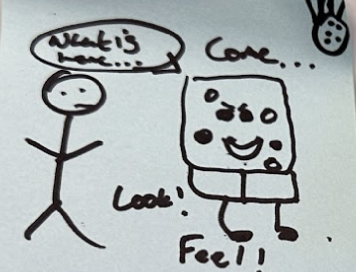 is
here...
Come...
Look!
Feel!!